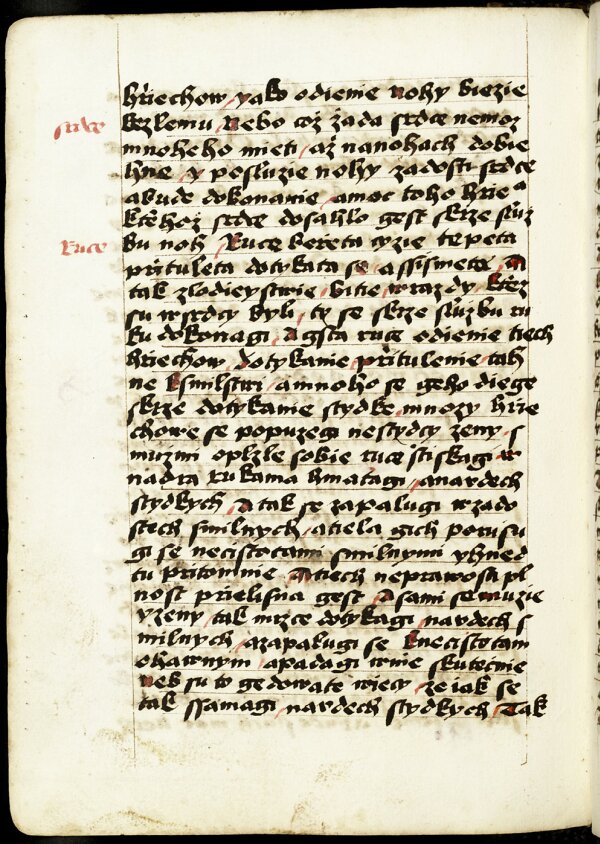 hřiechow yako odienie nohy biezie
srdce
bez lemu Nebo coz žada srdce nemoz
mnoheho mieti až nanohach dobie
hne y posluzie nohy zadosti srdce
abude dokonanie amoc toho hrie
ktehoz srdce dosahlo gest skrze sluz
Ruce
bu noh Ruce bereta
prituleta dotykata se a
tak zlodieystwie bitie wrazdy ktez
su wsrdcy byli ty se skrze sluzbu ru
ku dokonagi Agsta ruce odienie tiech
hriechow dotykanie pritulenie tah
ne ksmilstwi amnoho se geho diege
skrze dotykanie stydke mnozy hrie
chowe se popuzegi nestydcy zeny s
muzmi oplzle sobie ruce stiskagi w
nadra rukama hmatagi anawdech
stydkych A tak se zapalugi wzado
stech smilnych atiela gich porusu
gi se necistotami smilnymi yhned
tu pritomnie Atiech neprawosti pl
nost prielisna gest A sami se muzie
yzeny tak mrzce dotykagi nawdech s
milnych azapalugi se knecistotam
ohawnym apadagi wnie skutecnie
neb su to gedowate wiecy ze iak se
tak ssamagi nawdech stydkych Tak